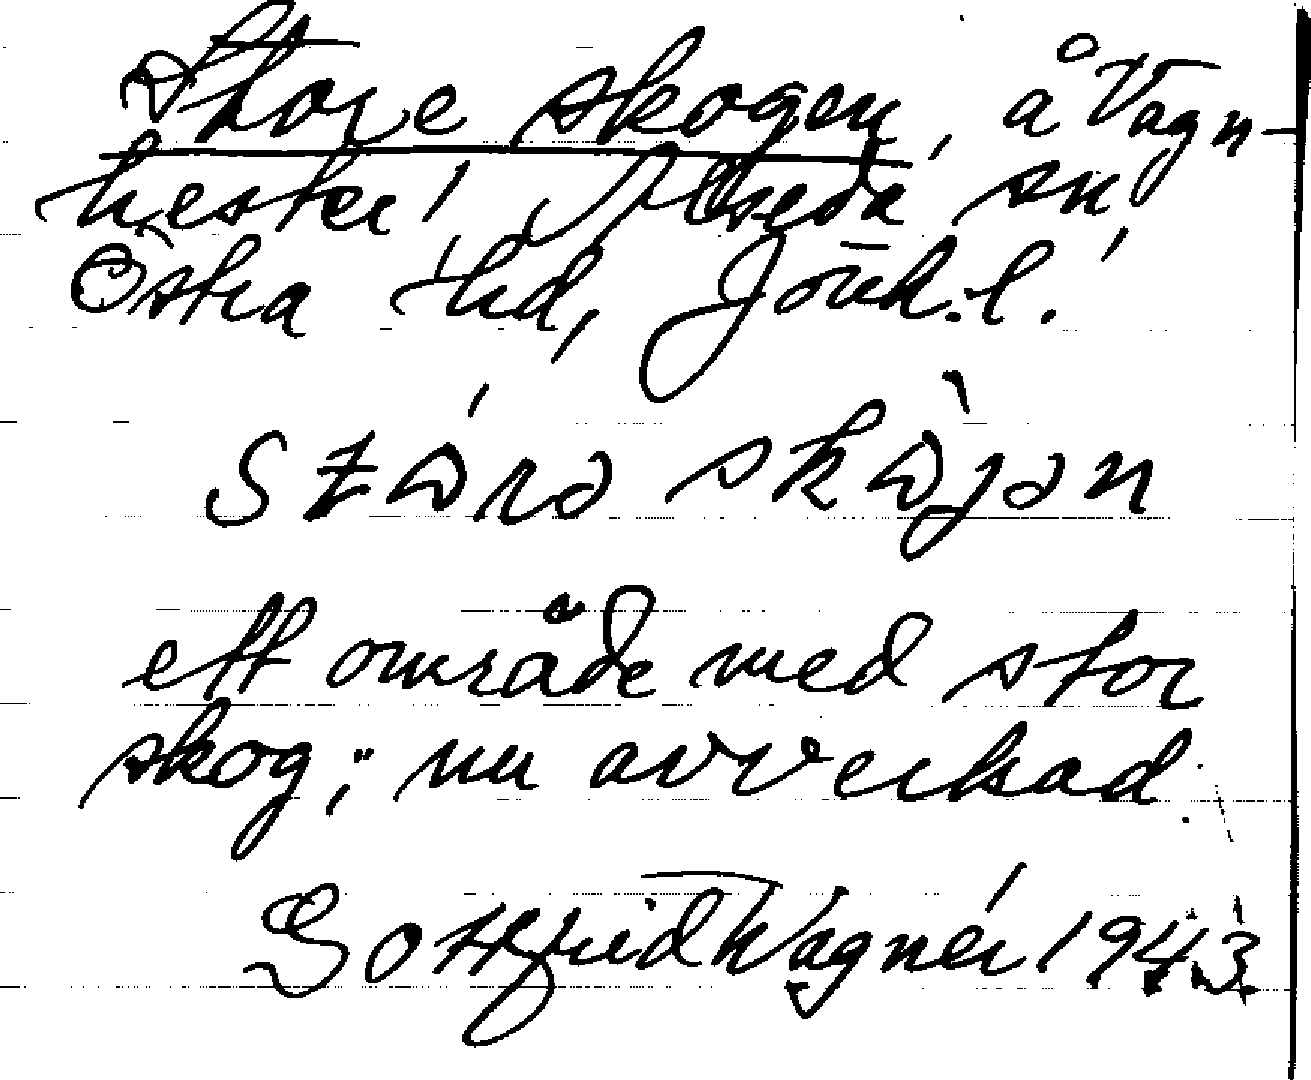 Store skogen, å Vagn-
hester, Alseda sn,
Östra hd, Jönk.l.
stórə skòjən
ett område med stor
skog; nu avverkad.
Gottfrid Wagnér 1943